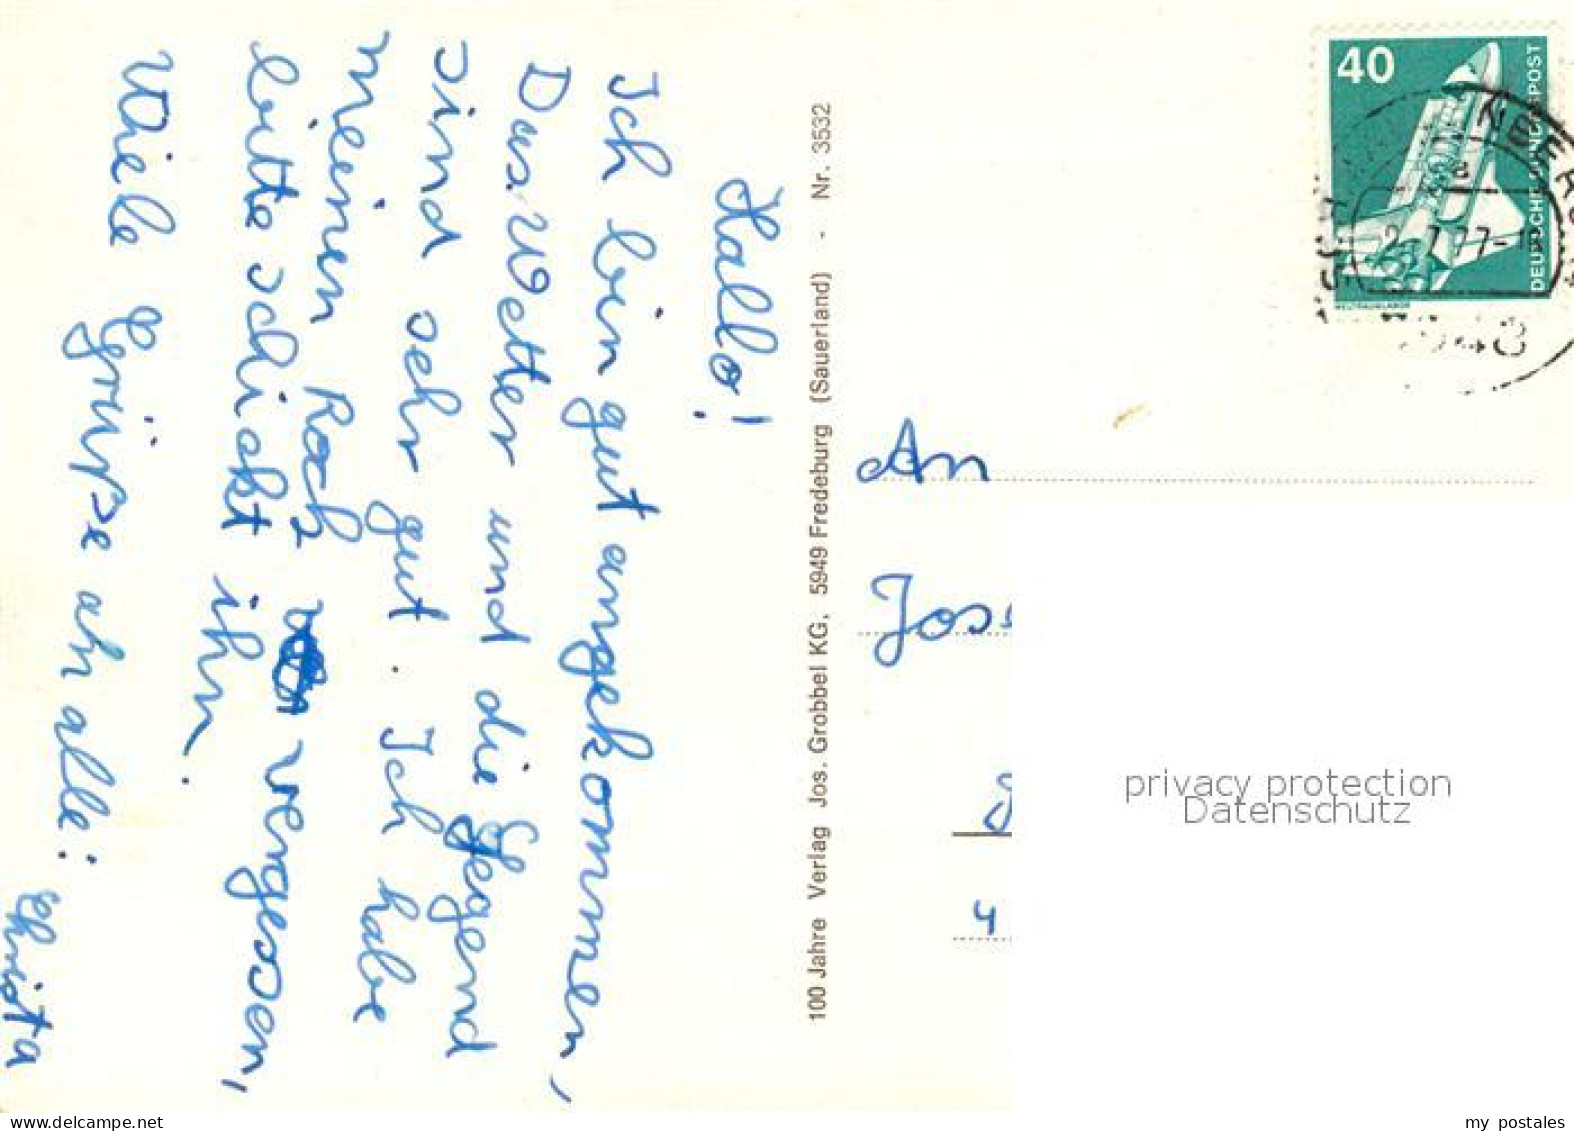 Hallo!
Ich bin gut angekommen,
Das Wetter und die Gegend
sind sehr gut. Ich habe
meinen Rock vergessen,
bitte schickt ihn.
Viele Grüße an alle:
Christa
100 Jahre Verlag Jos. Grobbel KG, 5949 Fredeburg (Sauerland) - Nr. 3532
40
DEUTSCHE BUNDESPOST
WELTRAUMLABOR
An
privacy protection
Datenschutz
www.delcampe.net
my_postales